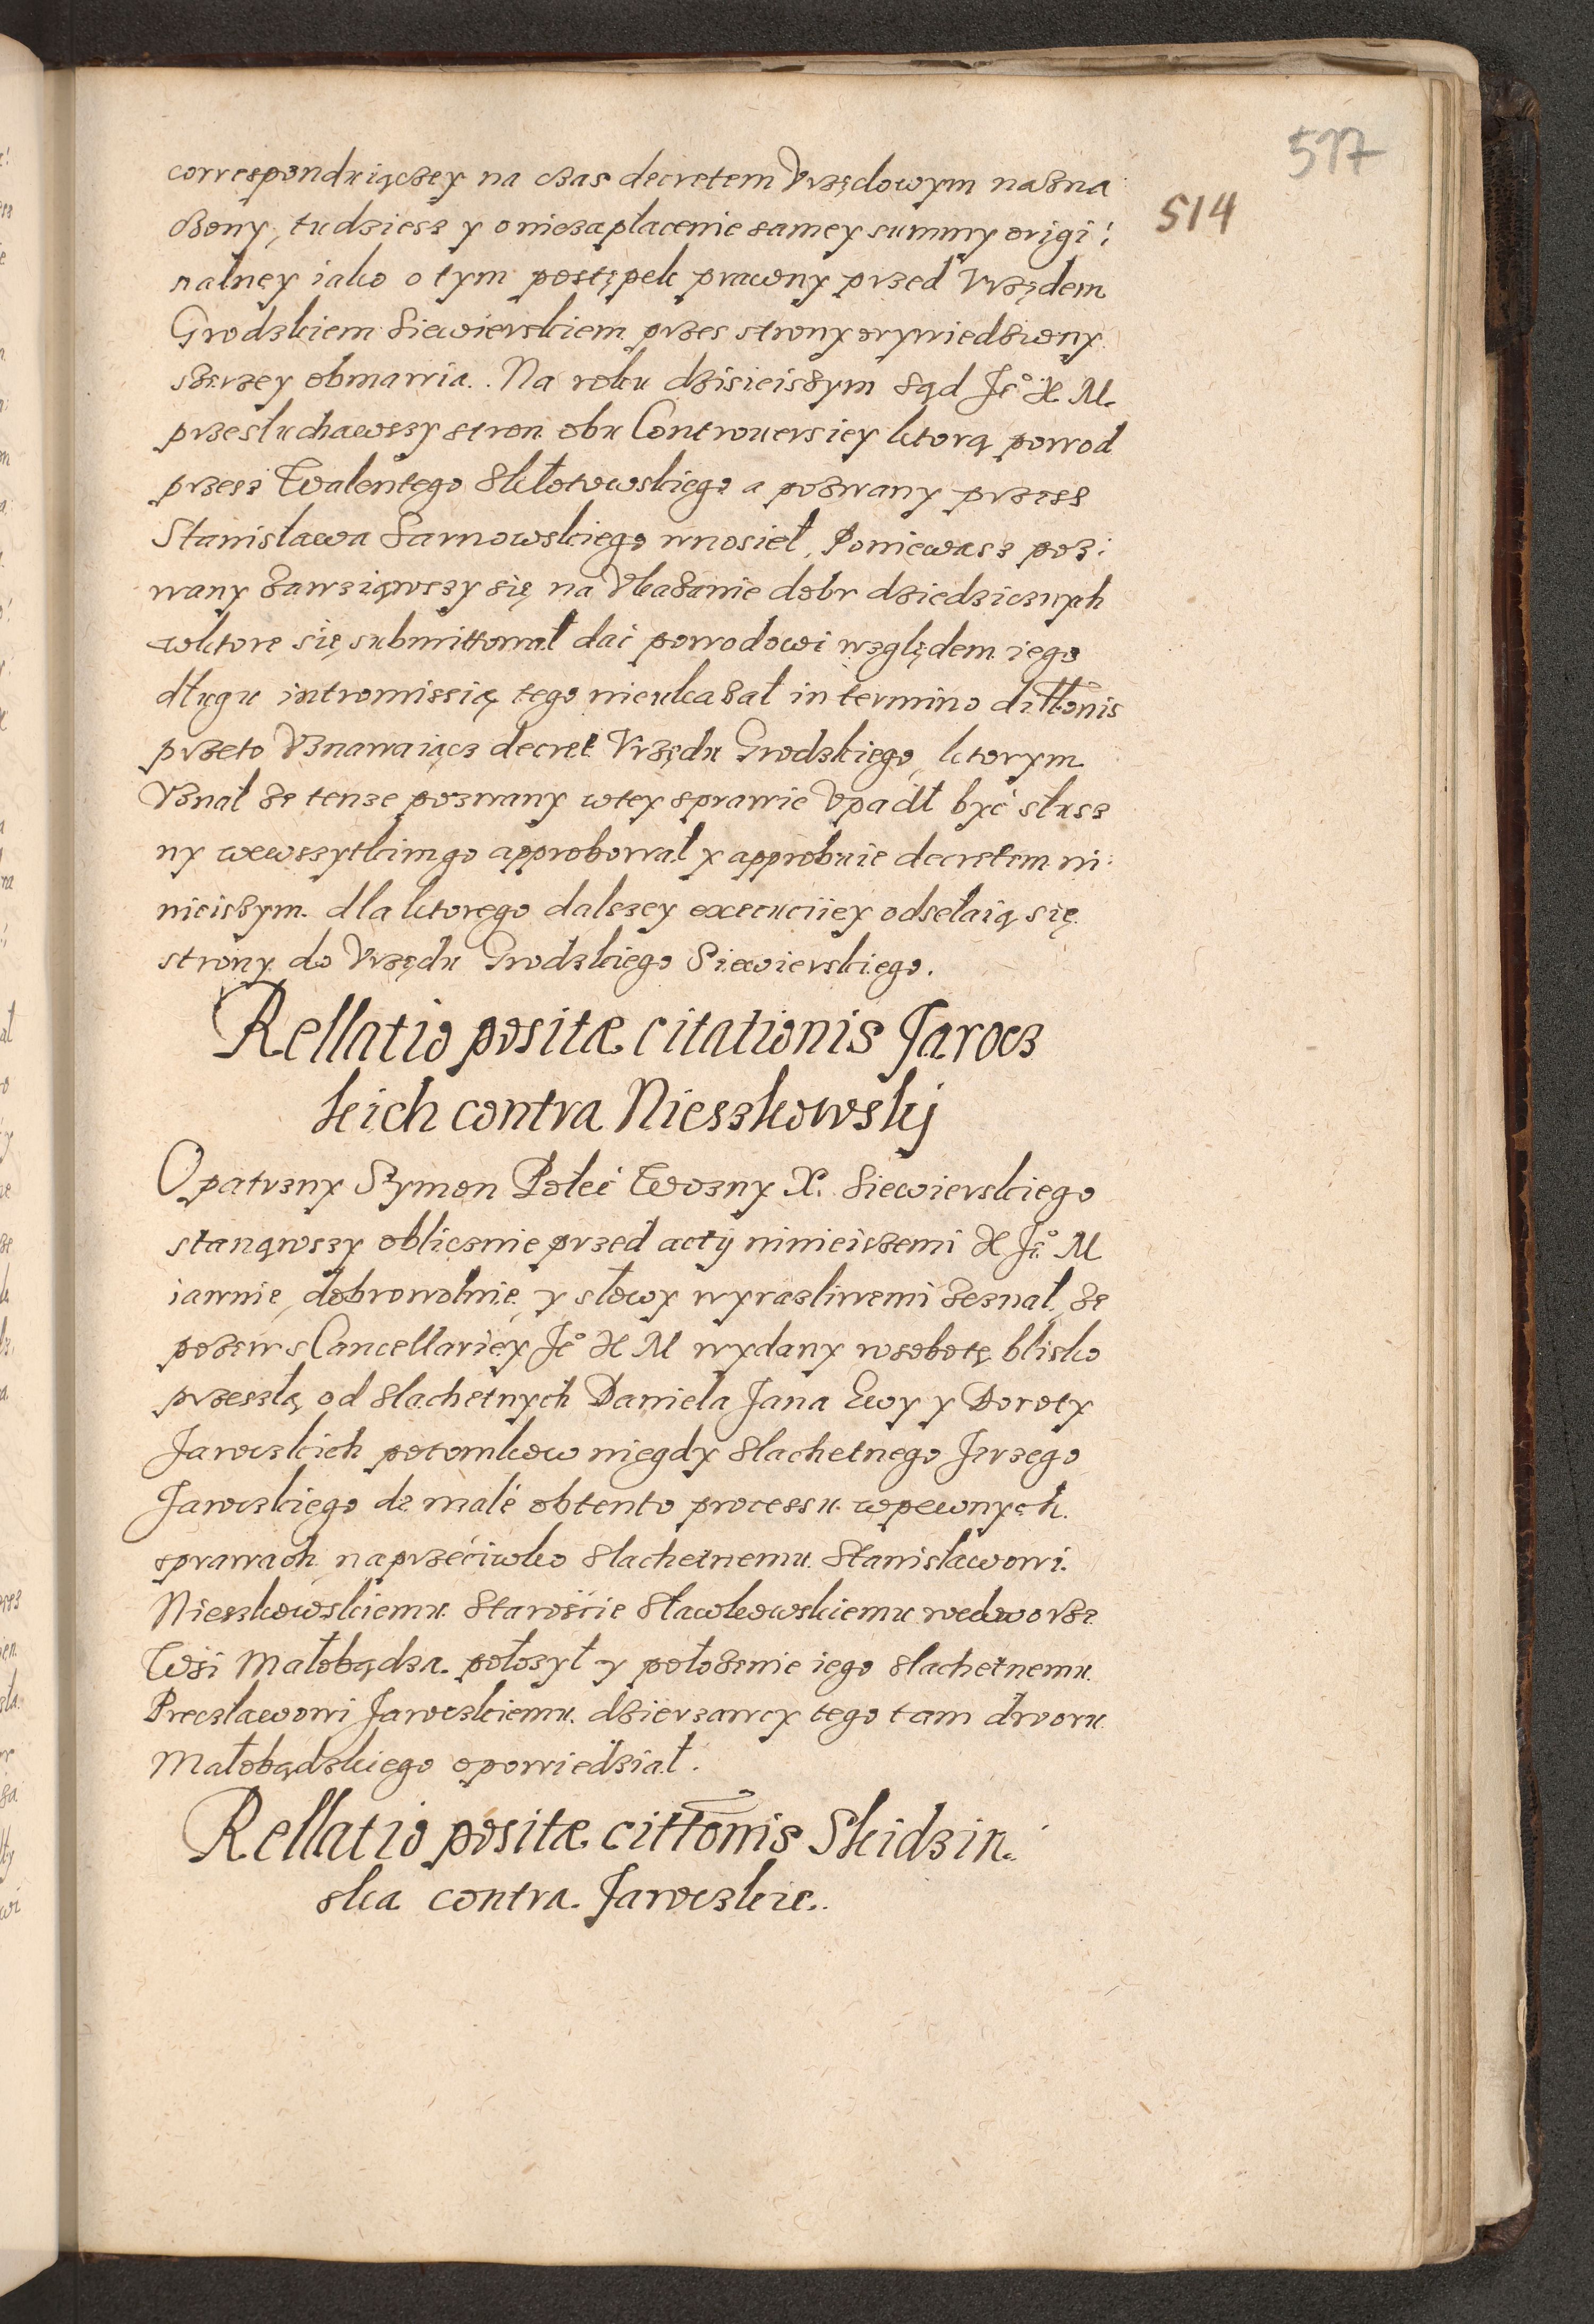 517
514
corresponduiączey na czas decretem Vrzędowym nazna
czony, tudziesz y oniezapłacenie samey summy origi:
nalney iako o tym postępek prawny przed Vrzędem
Grodzkiem Siewierskiem przes strony wywiedziony
szerzey obmawia. Na roku dzisieiszym Sąd Je° X. M.
przesłuchawszy stron obu Controuersiey ktorą powod
przesz Walentego Skłotowskiego a pozwany przess
Stanisława Sarnowskiego wnosieł, Ponieważ poz:
wany zawziąwszy się na Vkazanie dobr dziedzicznych
wktore się submittował dać powodowi względem iego
długu intromissią tego nieukazał in termino dittonis
przeto Vznawaiącz decret Vrzędu Grodzkiego, ktorym
Vznał ze tenze pozwany wtey sprawie Vpadł być słusz
ny wewszytkimgo approbował y approbuie decretem ni:
nieiszym. dla ktorego dalszey executiiey odsełaią się
strony do Vrzędu Grodzkiego Siewierskiego.
Rellatio positæ citationis Jarocz
kich contra Nieszkowskj
Opatrzny Szymon Połeć Wozny X. Siewierskiego
stanąwszy oblicznie przed acty ninieiszemi X Je° M
iawnie, dobrowolnie, y słowy wyrazliwemi zeznał, ze
pozew s Cancellariey Je° X M wydany wsobotę blisko
przeszłą od slachetnych Daniela Jana Ewy y Doroty
Jaroczkich potomkow niegdy slachetnego Jerzego
Jaroczkiego de malé obtento processu wpewnych
sprawach naprzeciwko slachetnemu Stanisławowi
Nieszkowskiemu Starościе Sławkowskiemu wedworze
Wśi Małobądza połozył y połozenie iego slachetnemu
Preczławowi Jaroczkiemu dzierzawcy tego tam dworu
Małobądzkiego opowiedział.
Rellatio positæ cittonis Skidzin:
ska contra Jaroczkie.